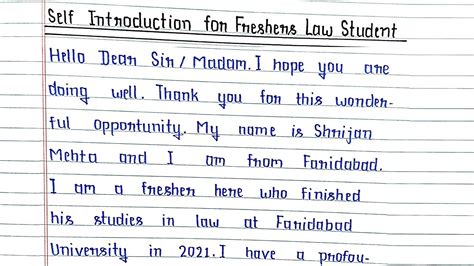 Self Introduction for Freshers Law Student
Hello Dear Sir / Madam. I hope you are
doing well. Thank you for this wonder-
ful opportunity. My name is Shrijan
Mehta and I am from Faridabad.
I am a fresher here who finished
his studies in law at Faridabad
University in 2021. I have a profou-